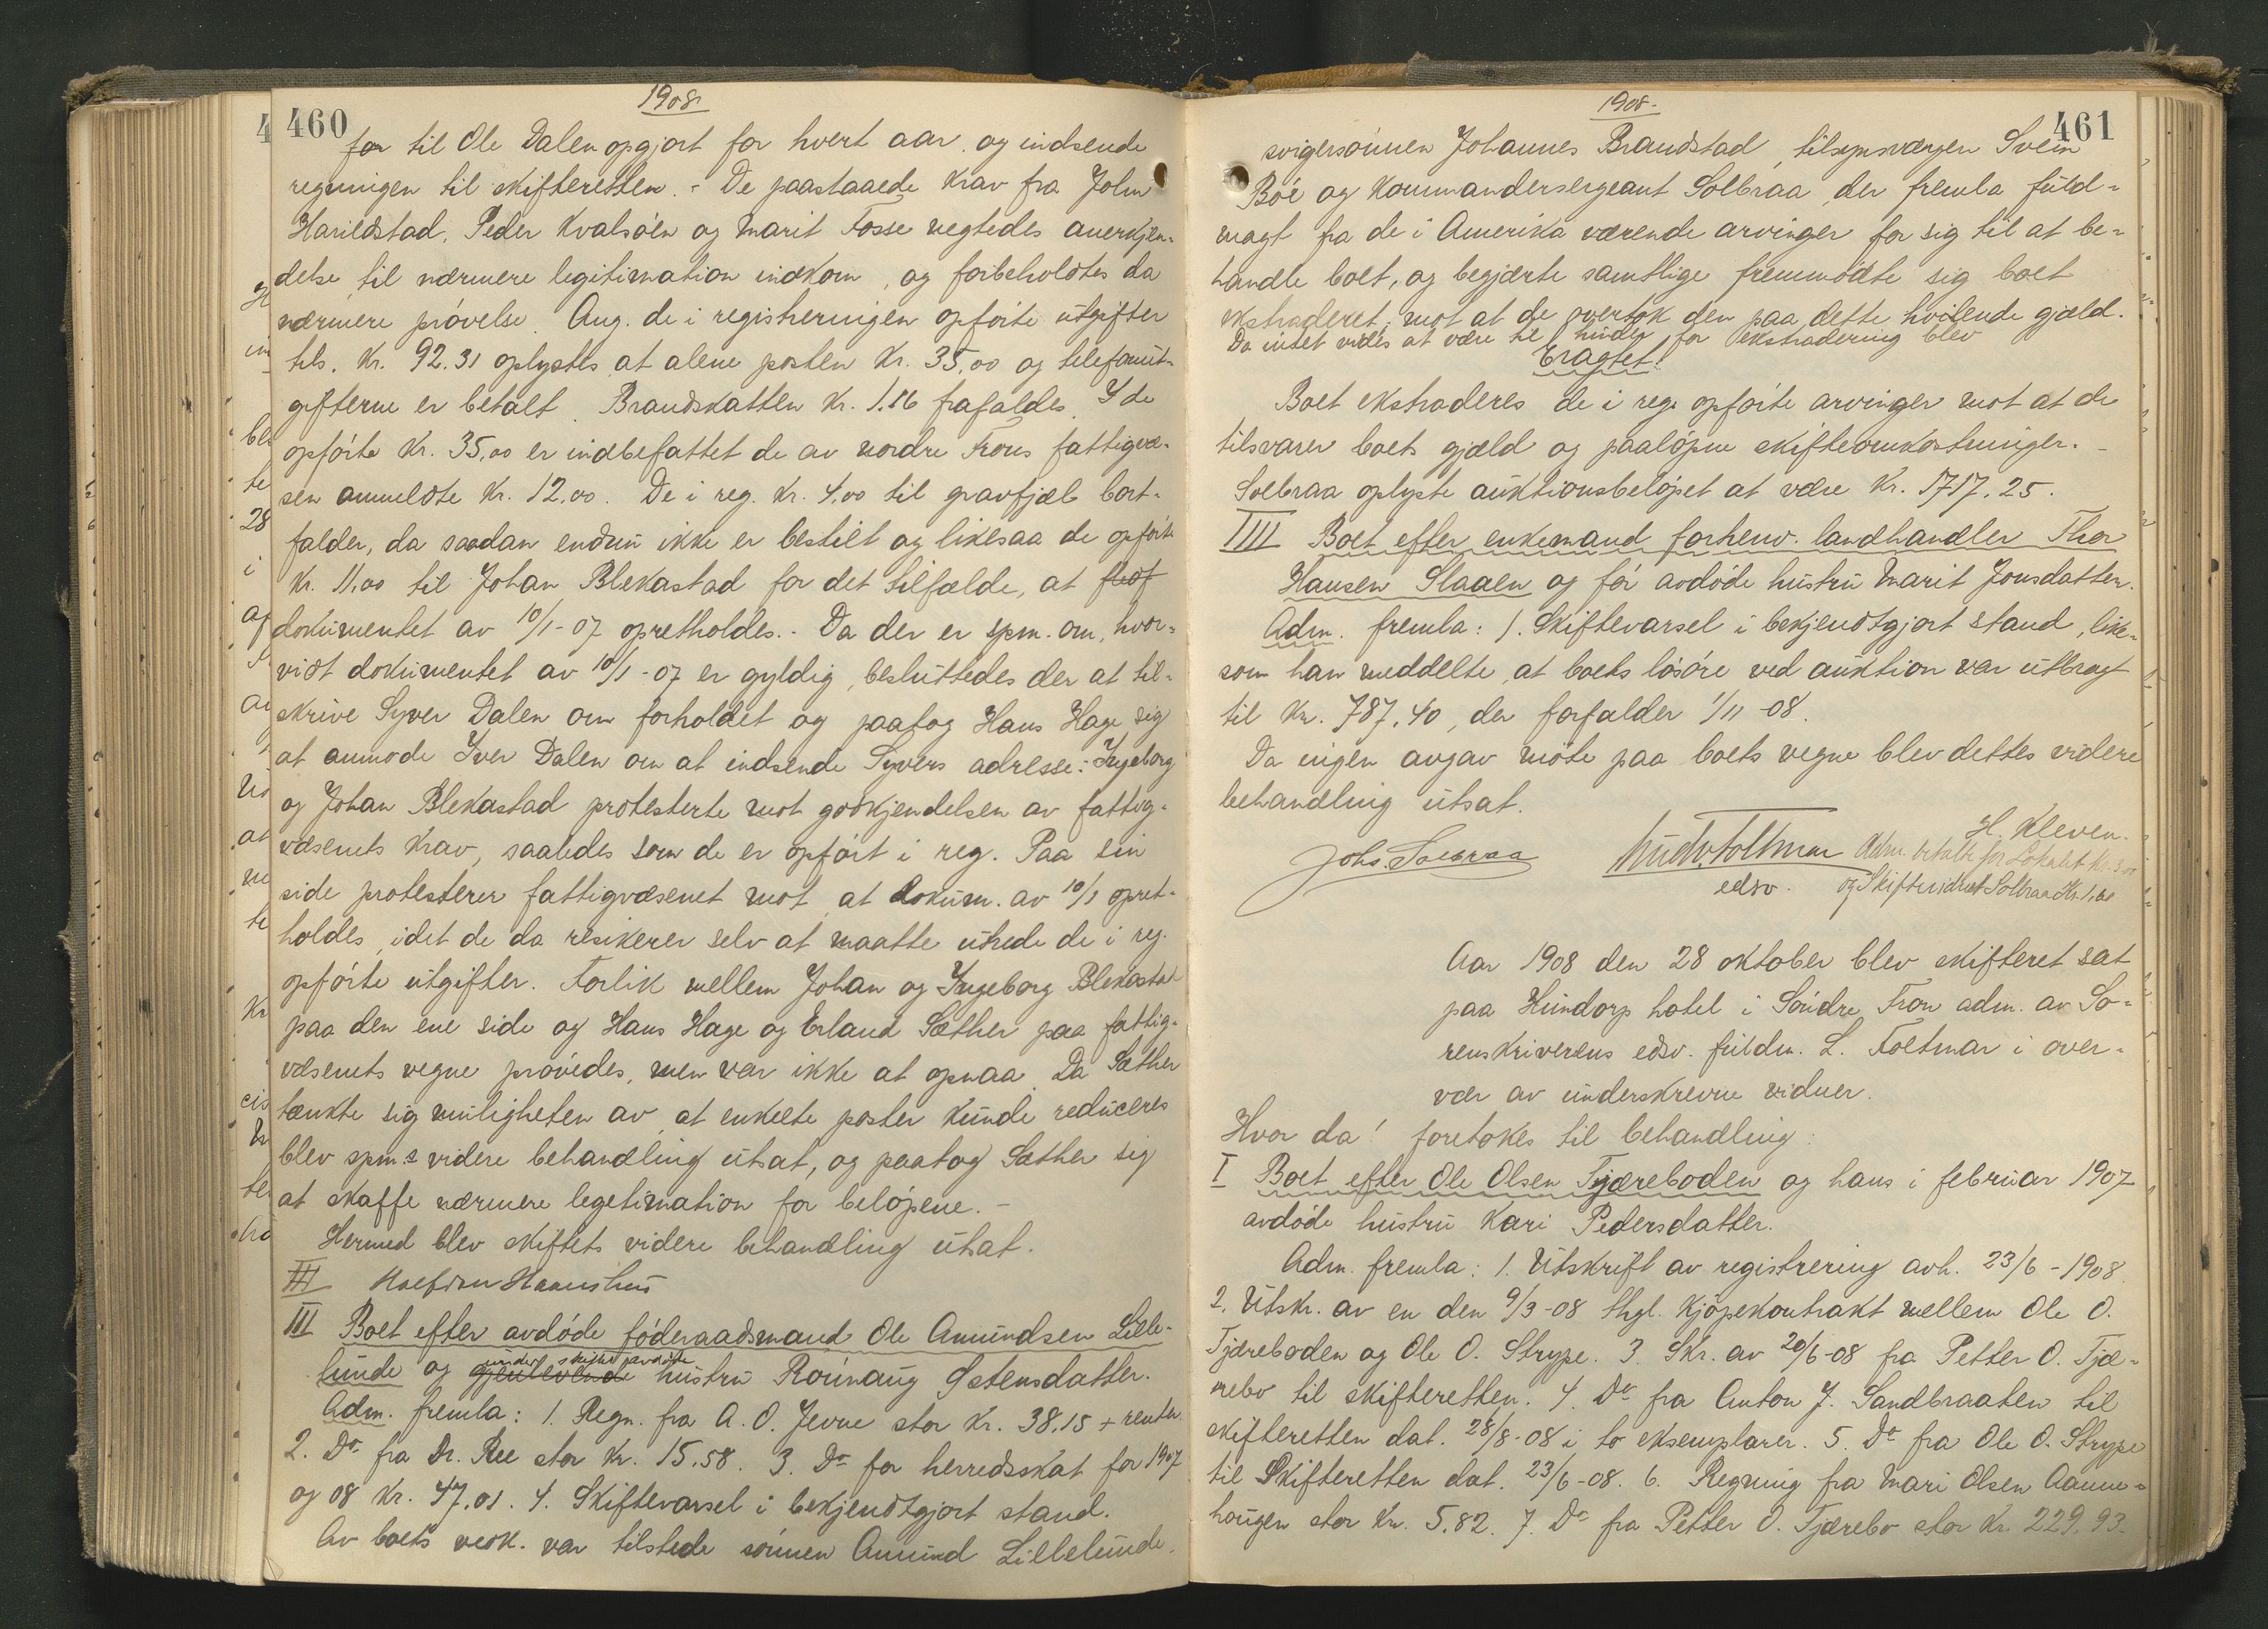 460
1908
for til Ole Dalen opgjort for hvert aar og indsende
regningen til skifteretten. - De paastaaede krav fra John
Harildstad, Peder Kvalsöen og Marit Fosse negtedes anerkjen-
delse til nærmere legitimation indkom, og forbeholdtes da
nærmere prövelse. Ang. de i registreringen opförte utgifter
tils. Kr. 92.31 oplystes at alene posten Kr. 35,00 og telefonut-
gifterne er betalt. Brandskatten Kr. 1.86 frafaldes. I de
opförte Kr. 35,00 er indbefattet de av nordre Frons fattigvæ-
sen anmeldte Kr. 12,00. De i reg. Kr. 4,00 til gravfjæl bort-
falder, da saadan endnu ikke er bestilt og likesaa de opförte
Kr. 11,00 til Johan Blekastad for det tilfælde, at
dokumentet av 10/1-07 opretholdes. - Da der er spm. om, hvor-
vidt dokumentet av 10/1-07 er gyldig, besluttedes der at til-
skrive Syver Dalen om forholdet og paatog Hans Hage sig
at anmode Iver Dalen om at indsende Syvers adresse: Ingeborg
og Johan Blekastad protesterte mot godkjendelsen av fattig-
væsenets krav, saaledes som de er opfört i reg. Paa sin
side protesterer fattigvæsenet mot, at dokum. av 10/1 opret-
holdes, idet de da risikerer selv at maatte utrede de i reg.
opförte utgifter. Forlik mellem Johan og Ingeborg Blekastad
paa den ene side og Hans Hage og Erland Sæther paa fattig-
væsenets vegne prövedes, men var ikke at opnaa. Da Sæther
tænkte sig muligheten av, at enkelte poster kunde reduceres
blev spm.s videre behandling utsat, og paatog Sæther sig
at skaffe nærmere legetimation for belöpene. -
Hermed blev skiftets videre behandling utsat.
III
III Boet efter avdöde föderaadsmand Ole Amundsen Lille-
under skiftet avdöde
lunde og gjenlevende hustru Rönnaug Østensdatter.
Adm. fremla: 1. Regn. fra A. O. Jevne stor Kr. 38.15 + renter.
2. Do fra Dr. Ree stor Kr. 15.58. 3. Do for herredsskat for 1907
og 08 Kr. 47.01. 4. Skiftevarsel i bekjendtgjort stand.
Av boets vedk. var tilstede sönnen Amund Lillelunde.
461
1908.
svigersönnen Johannes Brandstad, tilsynsværgen Svein
Böe og kommandersergeant Solbraa, der fremla fuld-
magt fra de i Amerika værende arvinger for sig til at be-
handle boet, og begjærte samtlige fremmödte sig boet
ekstraderet mot at de overtok den paa dette hvilende gjæld.
Da intet vides at være til hinder for ekstradering blev
Eragtet!
Boet ekstraderes de i reg. opförte arvinger mot at de
tilsvarer boets gjæld og paalöpne skifteomkostninger. -
Solbraa oplyste auktionsbelöpet at være Kr. 1717.25.
IIII Boet efter enkemand forhenv. landhandler Thor
Hansen Slaaen og för avdöde hustru Marit Jonsdatter.
Adm. fremla: 1. Skiftevarsel i bekjendtgjort stand, like-
som han meddelte, at boets lösöre ved auktion var utbragt
til Kr. 787.40, der forfalder 1/11-08.
Da ingen avgav möte paa boets vegne blev dettes videre
behandling utsat.
H. Kleven.
Johs. Solbraa Ludv. Foltmar Adm. betalt for Lokalet Kr. 3.00
edsv. og Skiftevidnet Solbraa Kr. 1,60
Aar 1908 den 28 oktober blev skifteret sat
paa Hundorp hotel i Söndre Fron adm. av So-
renskriverens edsv. fuldm. L. Foltmar i over-
vær av underskrevne vidner.
Hvor da! foretokes til behandling:
I Boet efter Ole Olsen Tjæreboden og hans i februar 1907
avdöde hustru Kari Pedersdatter.
Adm. fremla: 1. Utskrift av registrering avh. 23/6-1908.
2. Utskr. av en den 9/3-08 thgl. kjöpekontrakt mellem Ole O.
Tjæreboden og Ole O. Strype. 3. Skr. av 20/6-08 fra Petter O. Tjæ-
rebo til skifteretten. 4. Do fra Anton J. Sandbraaten til
skifteretten dat. 28/8-08 i to eksemplarer. 5. Do fra Ole O. Strype
til Skifteretten dat. 23/6-08. 6. Regning fra Mari Olsen Aanne-
haugen stor Kr. 5.82. 7. Do fra Petter O. Tjærebo stor Kr. 229.93.